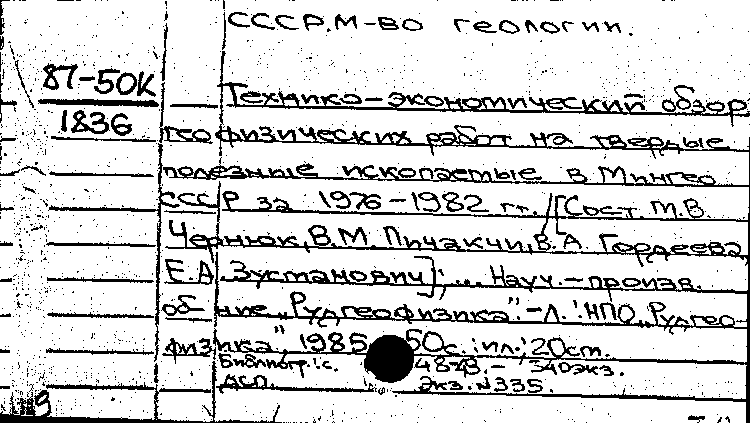 СССР. М-во геологии.
87-50К
1836
Технико-экономический обзор
геофизических работ на твердые
полезные ископаемые в Мингео
СССР за 1976-1982 гг. / [Сост. М.В.
Чернюк, В.М. Пичакчи, В.А. Гордеева,
Е.А. Зустанович]; ... Науч.-произв.
об-ние "Рудгеофизика". - Л.: НПО "Рудгео-
физика", 1985 50с.: ил.; 20 см.
Библиогр.: с. 340 экз.
ДСП. Экз. N 335.
9